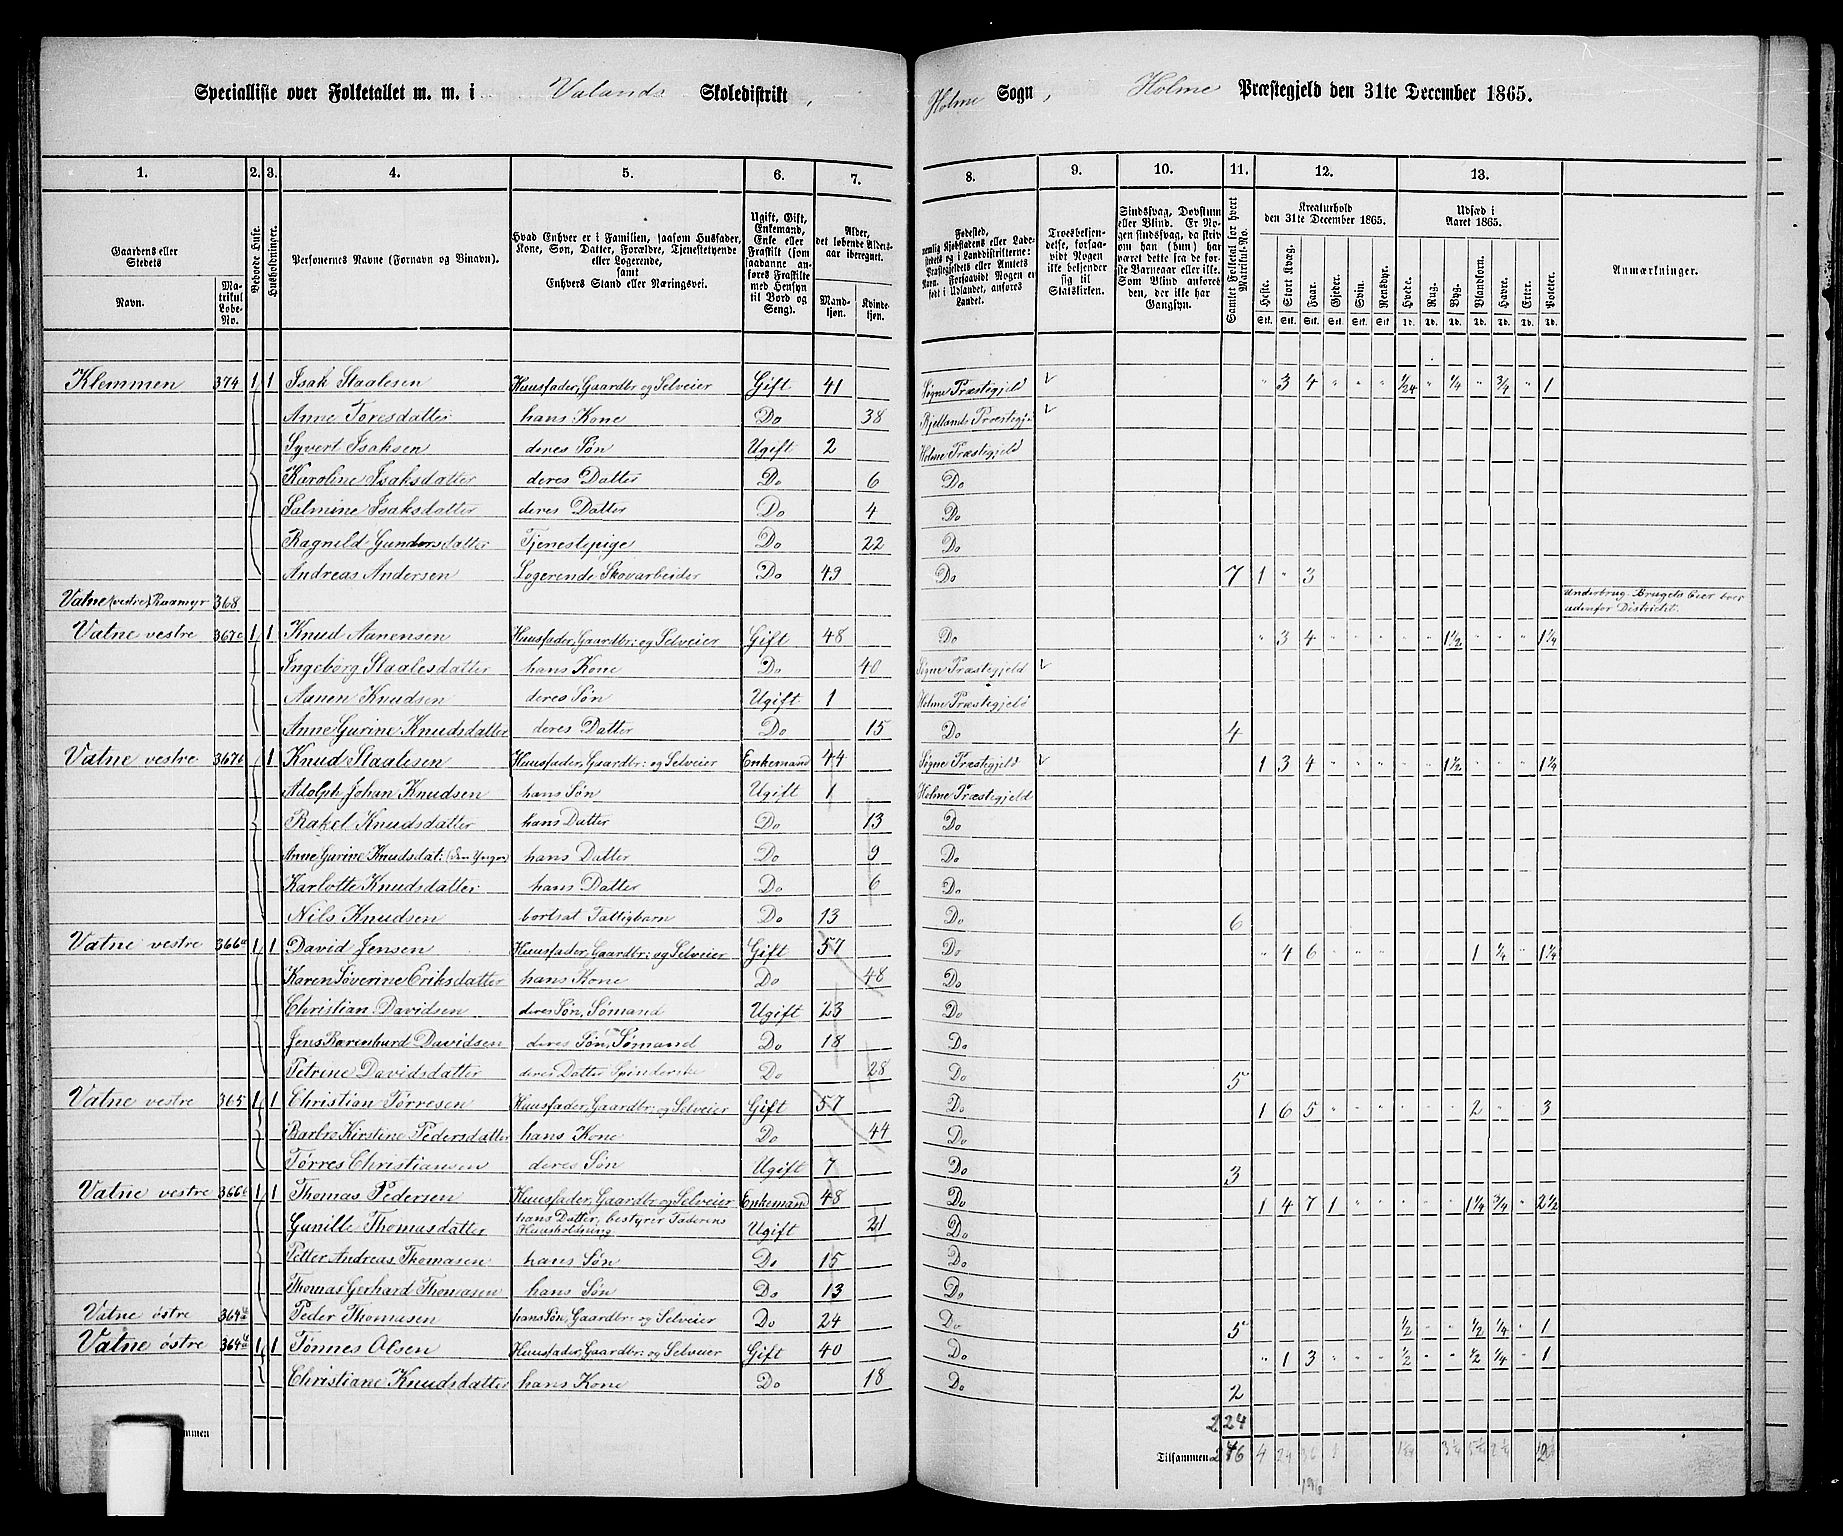 Speciallifte over Folketallet m. m. i Valands Skoledistrikt, Holme Sogn, Holme Præstegjeld den 31te December 1865.
1. 2. 3. 4. 5. 6. 7. 8. 9. 10. 11. 12. 13.
Gaardens eller Stedets Navn. Matrikul Løbe-No. Beboede Huse. Husholdninger. Personernes Navne (Fornavn og Binavn). Hvad Enhver er i Familien, saasom Husfader, Kone, Søn, Datter, Forældre, Tjenestetyende eller Logerende, samt Enhvers Stand eller Næringsvei. Ugift, Gift, Enkemand, Enke eller Fraskilt (som saadanne anføres Fraskilte med Hensyn til Bord og Seng). Alder, det løbende Aldersaar iberegnet. Mandkjøn. Kvindekjøn. Fødested, Troesbekjendelse, forsaavidt Nogen ikke bekjender sig til Statskirken. Samlet Folketal for hvert Matrikul-No. Kreaturhold den 31te December 1865. Heste. Stort Kvæg. Faar. Gjeder. Svin. Rensdyr. Udsæd i Aaret 1865. Hvede. Rug. Byg. Blandkorn. Havre. Erter. Poteter. Anmærkninger.
Klemmen 374 1 1 Isak Staalesen Huusfader, Gaardbr og Selveier Gift 41 Søgne Præstegjeld " 3 4 " " " 1/24 " 1/4 " 3/4 " 1
Anne Toresdatter hans Kone Do 38 Bjellands Præstegj
Syvert Isaksen deres Søn Ugift 2 Holme Præstegjeld
Karoline Isaksdatter deres Datter Do 6 Do
Salmine Isaksdatter deres Datter Do 4 Do
Ragnild Gundersdatter Tjenestepige Do 22 Do
Andreas Andersen Logerende Skovarbeider Do 49 Do 7 1 " 3
Vatne (vestre) Raamyr 368 Underbrug. Brugets Eier boer udenfor Districtet.
Vatne vestre 367c 1 1 Knud Aanensen Huusfader, Gaardbr: og Selveier Gift 48 Do " 3 4 " " " " " 1 1/2 " " " 1 1/4
Ingeborg Staalesdatter hans Kone Do 40 Søgne Præstegjeld
Aanen Knudsen deres Søn Ugift 1 Holme Præstegjeld
Anne Gurine Knudsdatter deres Datter Do 15 Do 4
Vatne vestre 367b 1 Knud Staalesen Huusfader, Gaardbr: og Selveier Enkemand 44 Søgne Præstegjeld 1 3 4 " " " " " 1 1/2 " " " 1 1/4
Adolph Johan Knudsen hans Søn Ugift 1 Holme Præstegjeld
Rakel Knudsdatter hans Datter Do 13 Do
Anne Gurine Knudsdat: (den Yngre) hans Datter Do 9 Do
Karlotte Knudsdatter hans Datter Do 6 Do
Nils Knudsen bortsat Fattigbarn Do 13 Do 6
Vatne vestre 366a 1 1 David Jensen Huusfader, Gaardbr: og Selveier Gift 57 Do " 4 6 " " " " " " 1 3/4 " 1 1/4
Karen Søverine Eriksdatter hans Kone Do 48 Do
Christian Davidsen deres Søn, Sømand Ugift 23 Do
Jens Davidsen deres Søn, Sømand Do 18 Do
Petrine Davidsdatter deres Datter Spinderske Do 28 Do 5
Vatne vestre 365 1 1 Christian Tørresen Huusfader, Gaardbr: og Selveier Gift 57 Do 1 6 5 " " " " " " 2 " " 3
Barbro Kirstine Pedersdatter hans Kone Do 44 Do
Tørres Christiansen deres Søn Ugift 7 Do 3
Vatne vestre 366b 1 1 Thomas Pedersen Huusfader, Gaardbr og Selveier Enkemand 48 Do 1 4 7 1 " " " " " 1 1/4 3/4 " 2 1/2
Gunille Thomasdatter hans Datter, bestyrer Faderens Huusholdning Ugift 21 Do
Petter Andreas Thomasen hans Søn Do 15 Do
Thomas Gerhard Thomasen hans Søn Do 13 Do
Vatne østre 364 Peder Thomasen hans Søn, Gaardbr: og Selveier Do 24 Do 5 1/2 " " 1/2 1/4 " 1
Vatne østre 364 1 1 Tønnes Olsen Huusfader, Gaardbr: og Selveier Gift 40 Do " 1 3 " " " 1/2 " " 1/2 1/4 " 1
Christiane Knudsdatter hans Kone Do 18 Do 2
224
Tilsammen 4 24 36 1